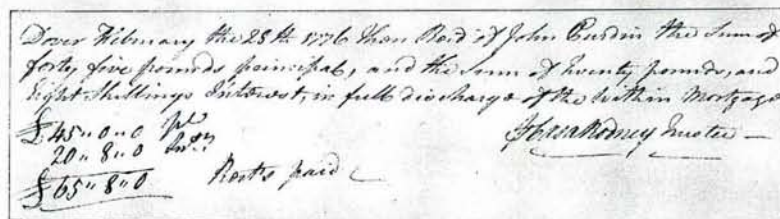 Dover February the 28th 1776 then Recd of John Purdin the Sum of
forty five pounds principal, and the sum of twenty pounds, and
Eight Shillings Interest, in full discharge of the within Mortgage
£ 45 " 0 " 0
20 " 8 " 0 Intt
Rodney Trustee
£ 65 " 8 " 0 paid